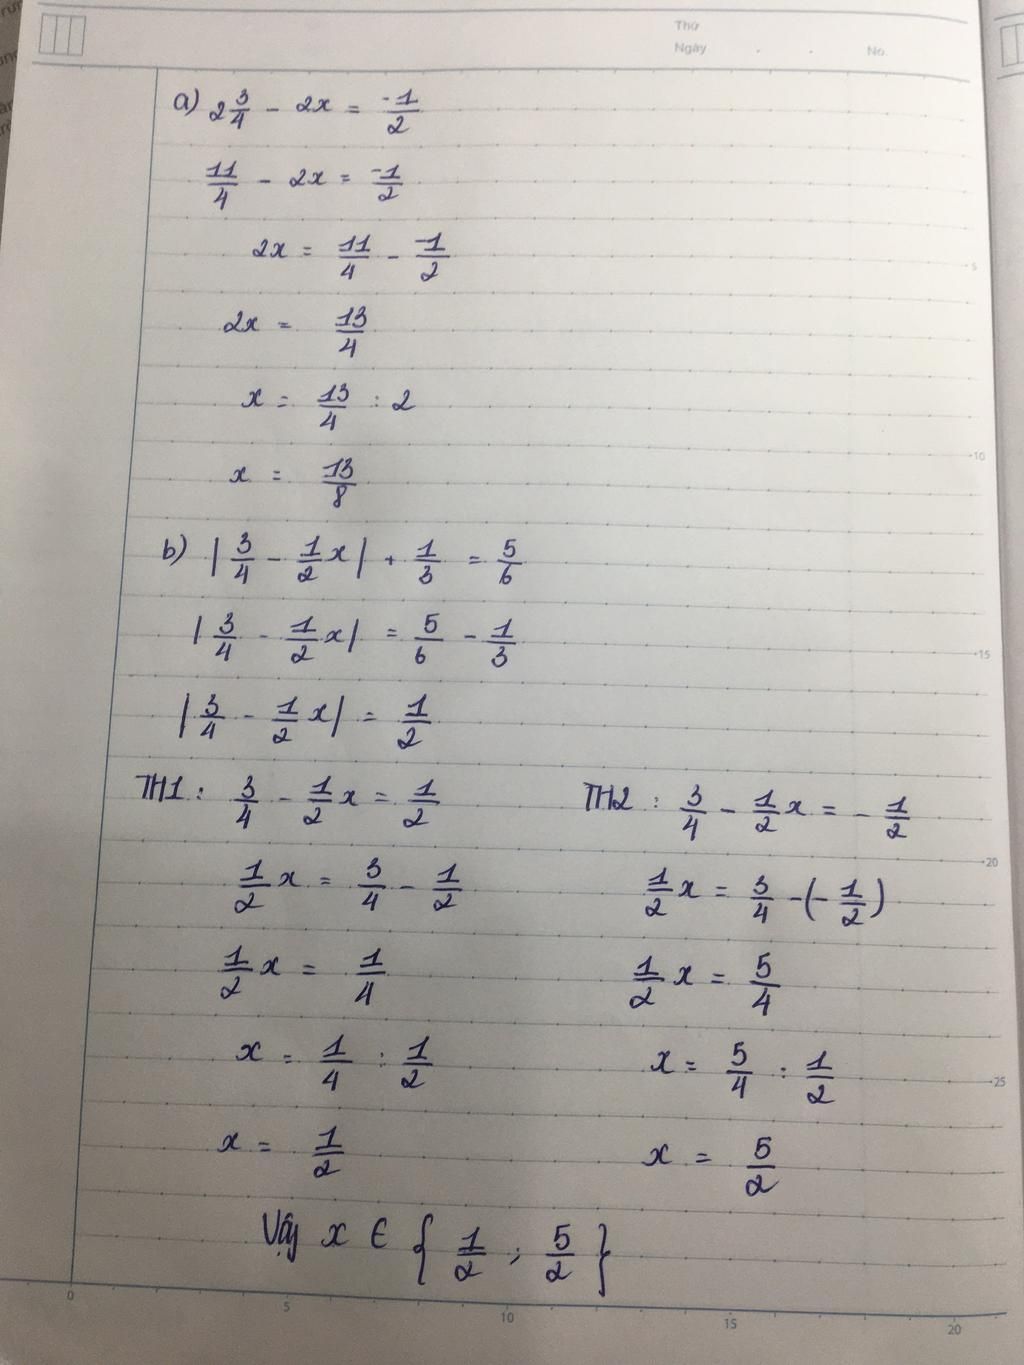 Thứ
Ngày . . No.
a) 2 3/4 - 2x = -1/2
11/4 - 2x = -1/2
2x = 11/4 - -1/2
2x = 13/4
x = 13/4 : 2
x = 13/8
b) |3/4 - 1/2 x| + 1/3 = 5/6
|3/4 - 1/2 x| = 5/6 - 1/3
|3/4 - 1/2 x| = 1/2
TH1 : 3/4 - 1/2 x = 1/2
1/2 x = 3/4 - 1/2
1/2 x = 1/4
x = 1/4 : 1/2
x = 1/2
TH2 : 3/4 - 1/2 x = - 1/2
1/2 x = 3/4 - (- 1/2)
1/2 x = 5/4
x = 5/4 : 1/2
x = 5/2
Vậy x ∈ { 1/2 ; 5/2 }
5
10
15
20
25
0 5 10 15 20